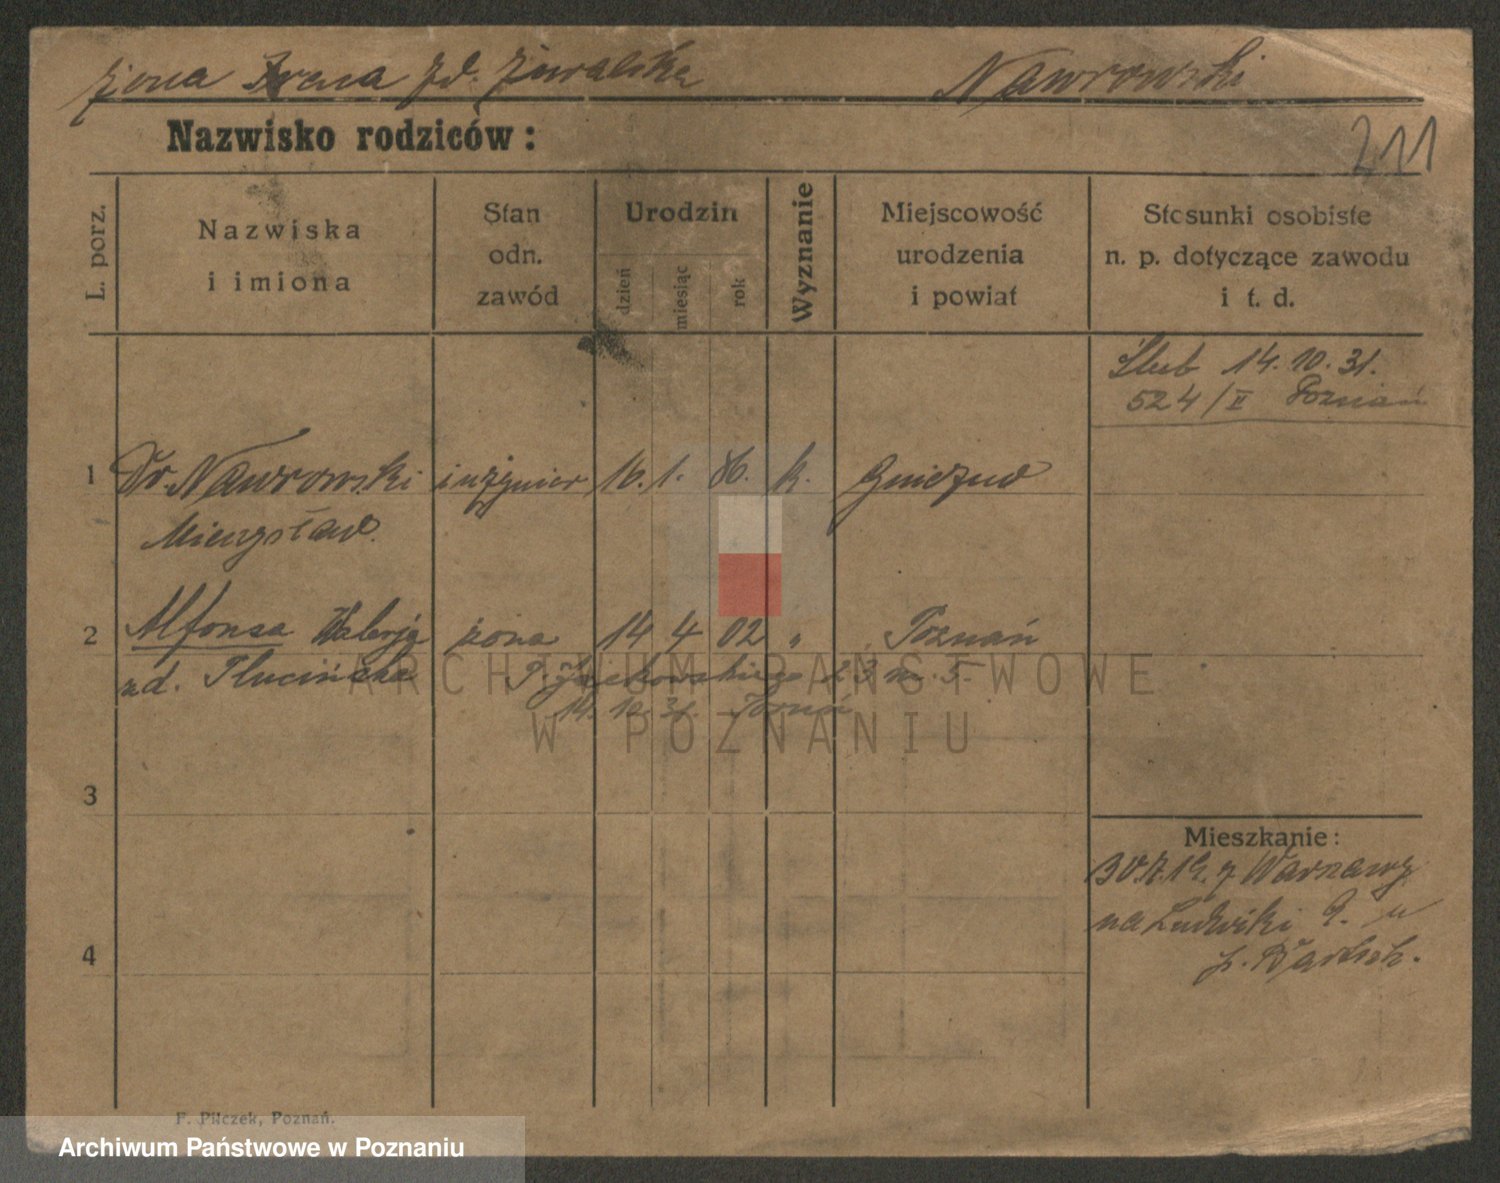 żona Irena zd. Żuralska Nawrowski
Nazwisko rodziców:
211
L. porz.
Nazwiska
i imiona
Stan
odn.
zawód
Urodzin
dzień
miesiąc
rok
Wyznanie
Miejscowość
urodzenia
i powiat
Stosunki osobiste
n. p. dotyczące zawodu
i t. d.
Ślub 14.10.31.
524/II Poznań
1 Dr. Nawrowski inżynier 16. 1. 86. k. Gniezno
Mieczysław
2 Alfonsa Walerja żona 14 4 02 " Poznań
zd. Tłucińska P. Jackowskiego 23 m. 5.
14. 10. 31 Toruń
3
Mieszkanie:
z Warszawy
na Ludwiki 9.
p. Bartsch.
4
F. Pilczek, Poznań.
ARCHIWUM PAŃSTWOWE
W POZNANIU
Archiwum Państwowe w Poznaniu